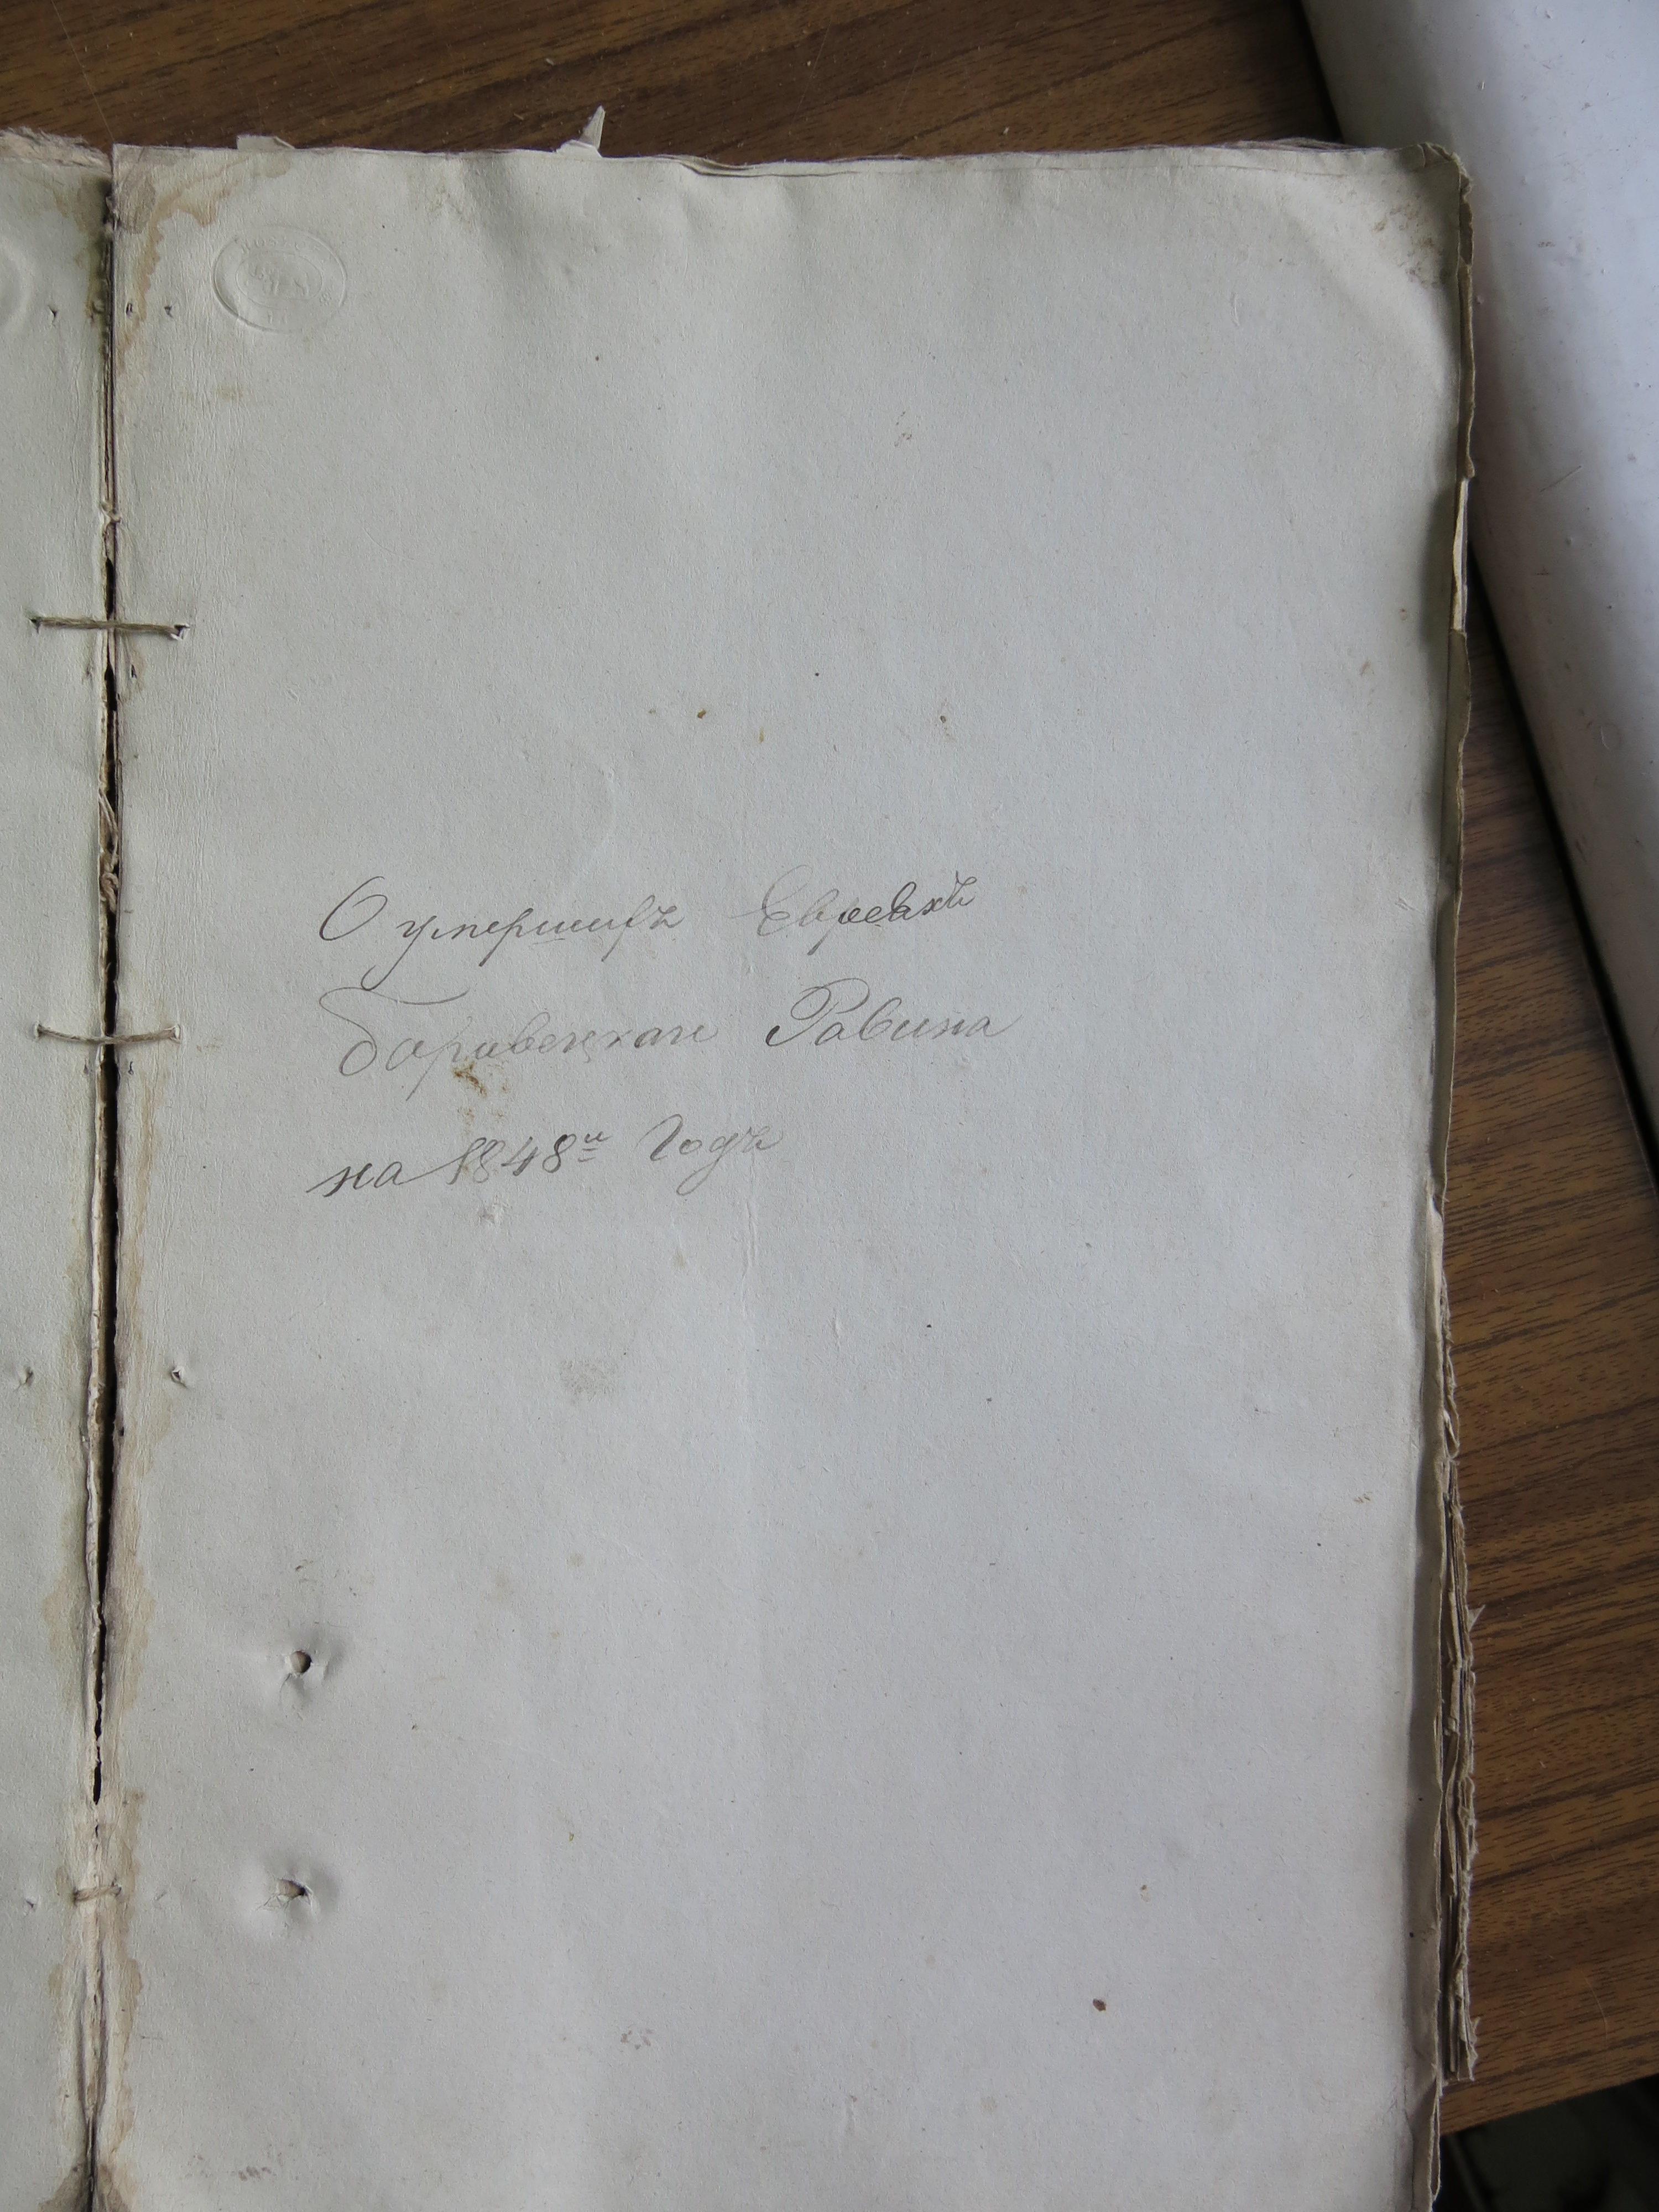 О умершихъ Евреахъ
Боровецкаго Равина
на 1848й Годъ